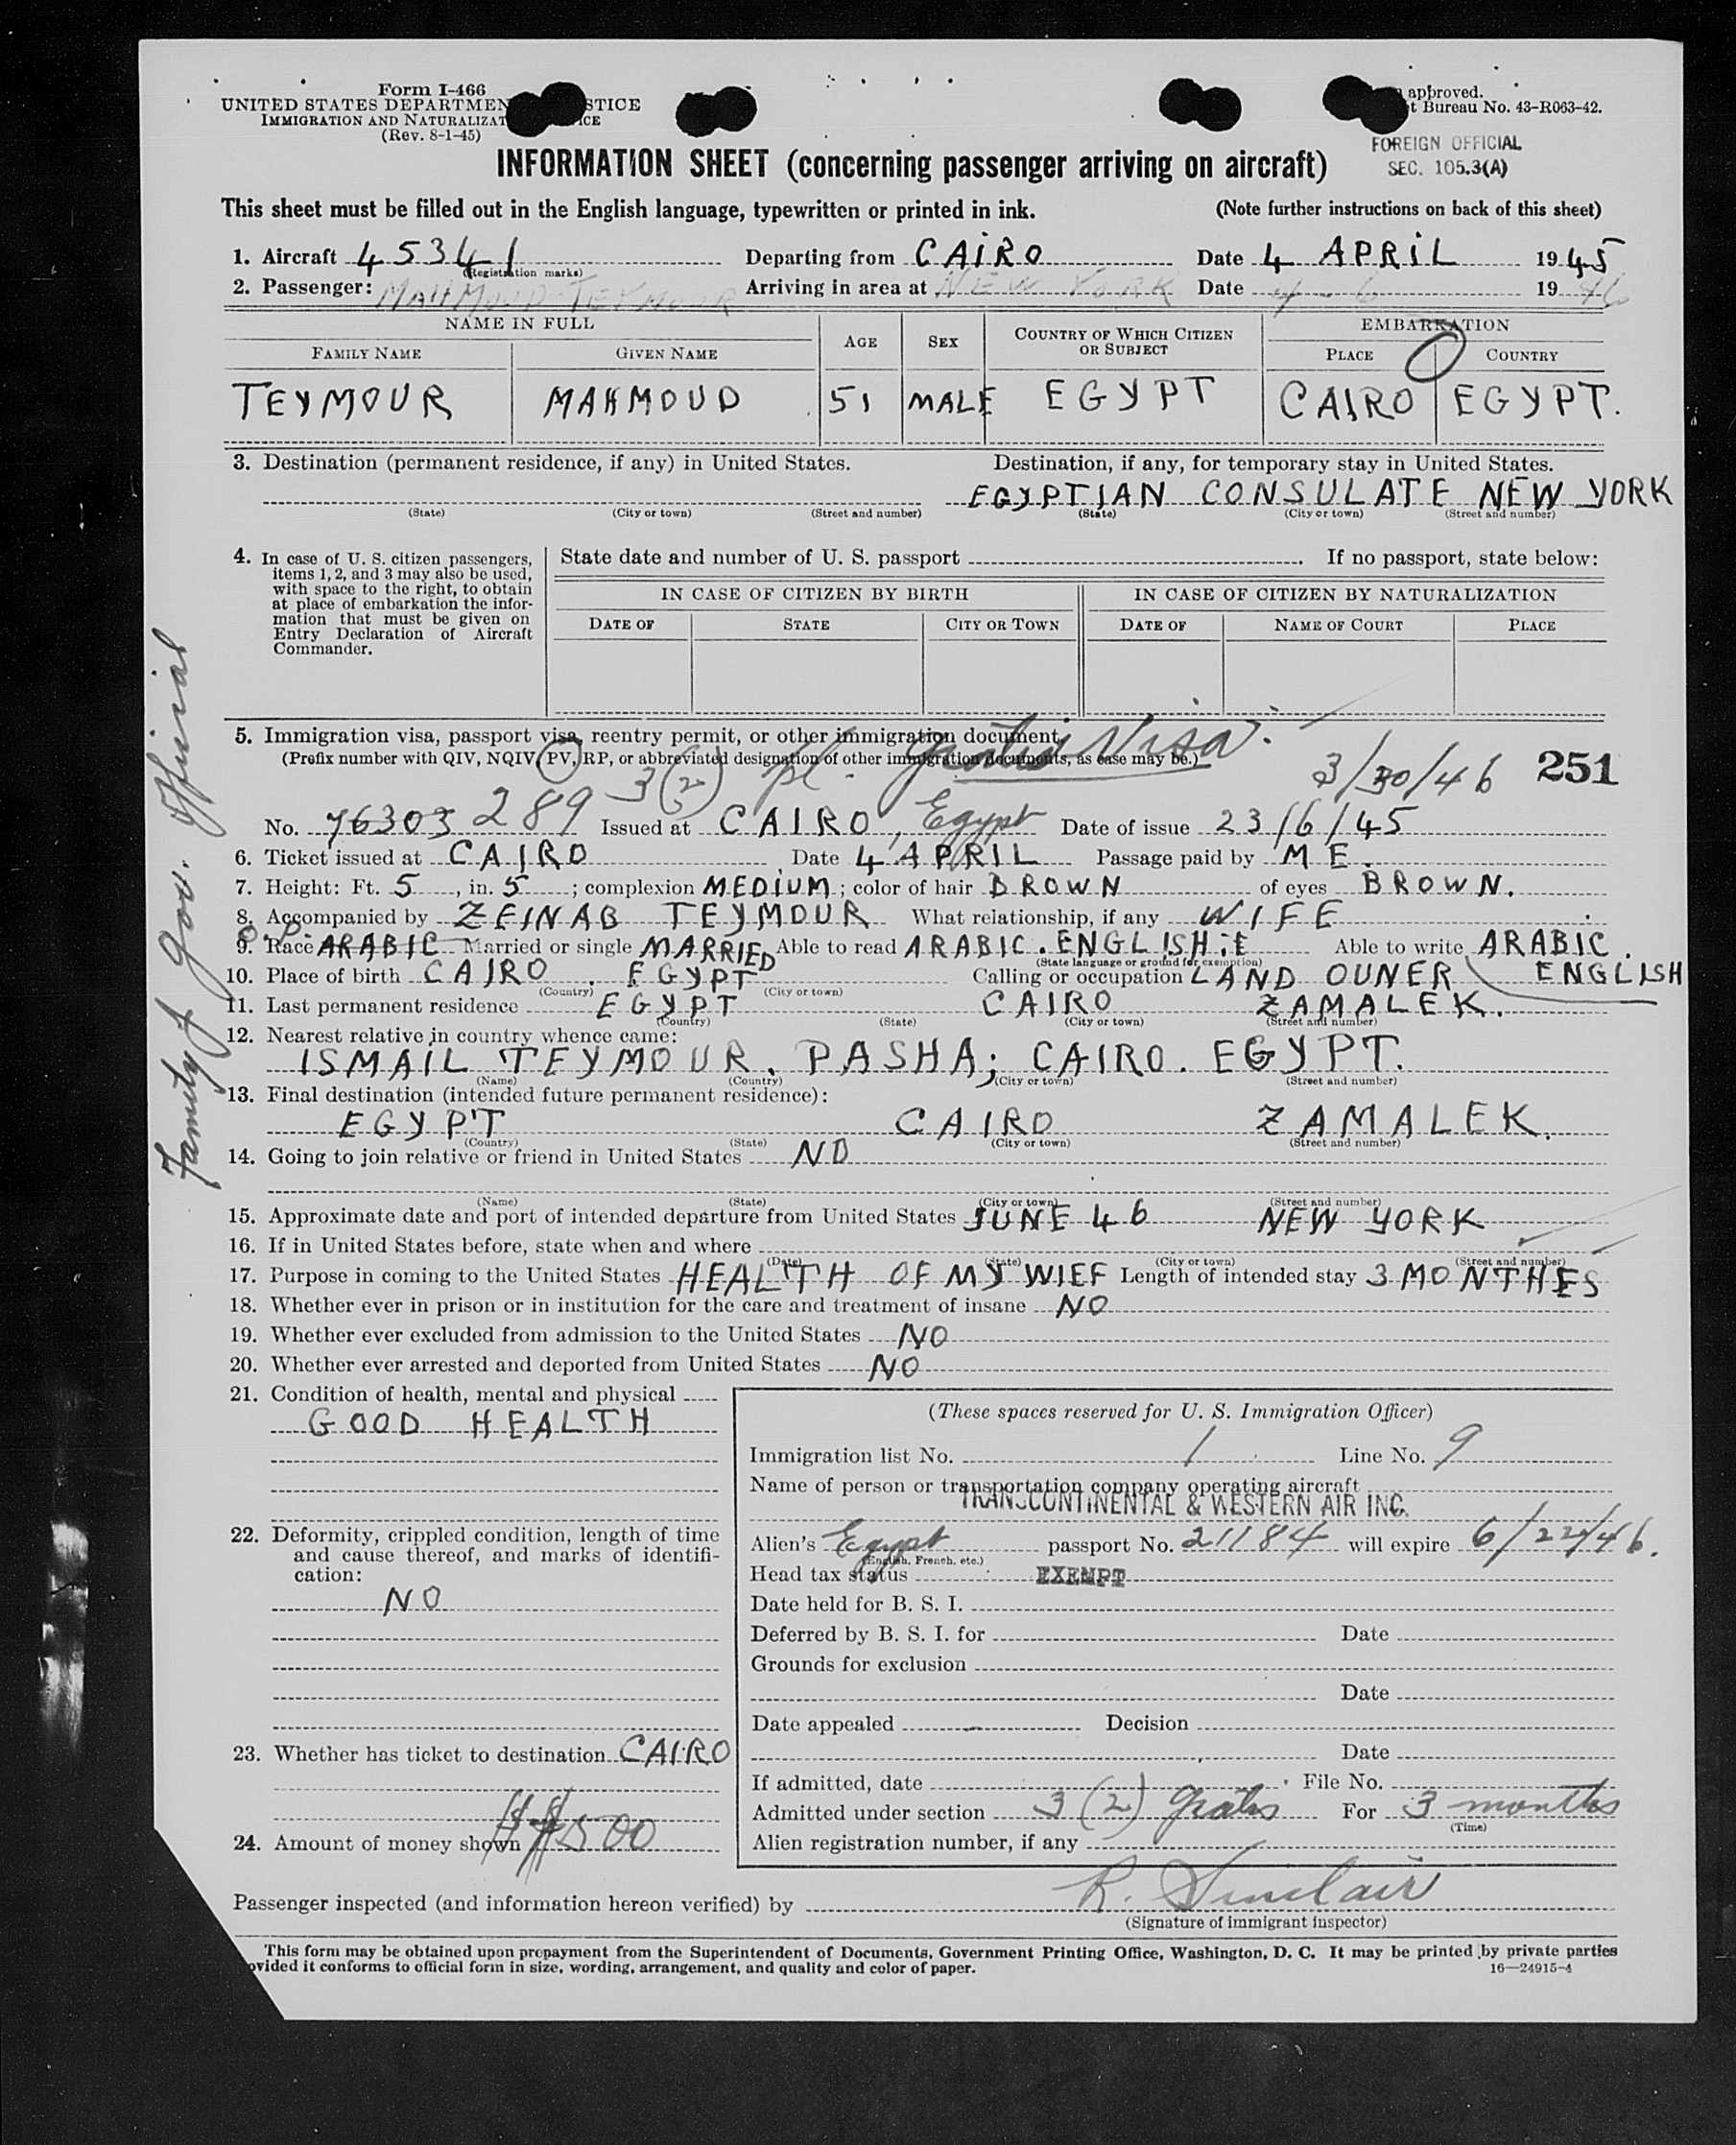 Form I-466
UNITED STATES DEPARTMEN STICE
IMMIGRATION AND NATURALIZAT ICE
(Rev. 8-1-45)
approved.
t Bureau No. 43-R063-42.
FOREIGN OFFICIAL
SEC. 105.3(A)
INFORMATION SHEET (concerning passenger arriving on aircraft)
This sheet must be filled out in the English language, typewritten or printed in ink. (Note further instructions on back of this sheet)
1. Aircraft 45341 Departing from CAIRO Date 4 APRIL 1945
(Registration marks)
2. Passenger: MAHMOUD TEYMOUR Arriving in area at NEW YORK Date 4-6 1946
NAME IN FULL AGE SEX COUNTRY OF WHICH CITIZEN OR SUBJECT EMBARKATION
FAMILY NAME GIVEN NAME PLACE COUNTRY
TEYMOUR MAHMOUD 51 MALE EGYPT CAIRO EGYPT.
3. Destination (permanent residence, if any) in United States. Destination, if any, for temporary stay in United States.
EGYPTIAN CONSULATE NEW YORK
(State) (City or town) (Street and number) (State) (City or town) (Street and number)
4. In case of U. S. citizen passengers,
items 1, 2, and 3 may also be used,
with space to the right, to obtain
at place of embarkation the infor-
mation that must be given on
Entry Declaration of Aircraft
Commander.
State date and number of U. S. passport . If no passport, state below:
IN CASE OF CITIZEN BY BIRTH IN CASE OF CITIZEN BY NATURALIZATION
DATE OF STATE CITY OR TOWN DATE OF NAME OF COURT PLACE
5. Immigration visa, passport visa, reentry permit, or other immigration document.
(Prefix number with QIV, NQIV, PV, RP, or abbreviated designation of other immigration documents, as case may be.)
3(2) pl. gratis Visa. 3/30/46 251
No. 76303 289 Issued at CAIRO, Egypt Date of issue 23/6/45
6. Ticket issued at CAIRO Date 4 APRIL Passage paid by ME.
7. Height: Ft. 5, in. 5; complexion MEDIUM; color of hair BROWN of eyes BROWN.
8. Accompanied by ZEINAB TEYMOUR What relationship, if any WIFE
9. Race ARABIC Married or single MARRIED Able to read ARABIC. ENGLISH:E Able to write ARABIC.
(State language or ground for exemption)
10. Place of birth CAIRO. EGYPT Calling or occupation LAND OUNER ENGLISH
(Country) (City or town)
11. Last permanent residence EGYPT CAIRO ZAMALEK.
(Country) (State) (City or town) (Street and number)
12. Nearest relative in country whence came:
ISMAIL TEYMOUR. PASHA; CAIRO. EGYPT.
(Name) (Country) (City or town) (Street and number)
13. Final destination (intended future permanent residence):
EGYPT CAIRO ZAMALEK.
(Country) (State) (City or town) (Street and number)
14. Going to join relative or friend in United States NO
(Name) (State) (City or town) (Street and number)
15. Approximate date and port of intended departure from United States JUNE 46 NEW YORK
16. If in United States before, state when and where
(Date) (State) (City or town) (Street and number)
17. Purpose in coming to the United States HEALTH OF MY WIEF Length of intended stay 3 MONTHES
18. Whether ever in prison or in institution for the care and treatment of insane NO
19. Whether ever excluded from admission to the United States NO
20. Whether ever arrested and deported from United States NO
21. Condition of health, mental and physical
GOOD HEALTH
22. Deformity, crippled condition, length of time
and cause thereof, and marks of identifi-
cation:
NO
23. Whether has ticket to destination CAIRO
24. Amount of money shown $500
(These spaces reserved for U. S. Immigration Officer)
Immigration list No. 1 Line No. 9
Name of person or transportation company operating aircraft
TRANSCONTINENTAL & WESTERN AIR INC.
Alien's Egypt passport No. 21184 will expire 6/22/46.
(English, French, etc.)
Head tax status EXEMPT
Date held for B. S. I.
Deferred by B. S. I. for Date
Grounds for exclusion
Date
Date appealed Decision
Date
If admitted, date File No.
Admitted under section 3(2) gratis For 3 months
(Time)
Alien registration number, if any
Passenger inspected (and information hereon verified) by R. Sinclair
(Signature of immigrant inspector)
This form may be obtained upon prepayment from the Superintendent of Documents, Government Printing Office, Washington, D. C. It may be printed by private parties
ovided it conforms to official form in size, wording, arrangement, and quality and color of paper. 16—24915-4
Family of Gov. Official